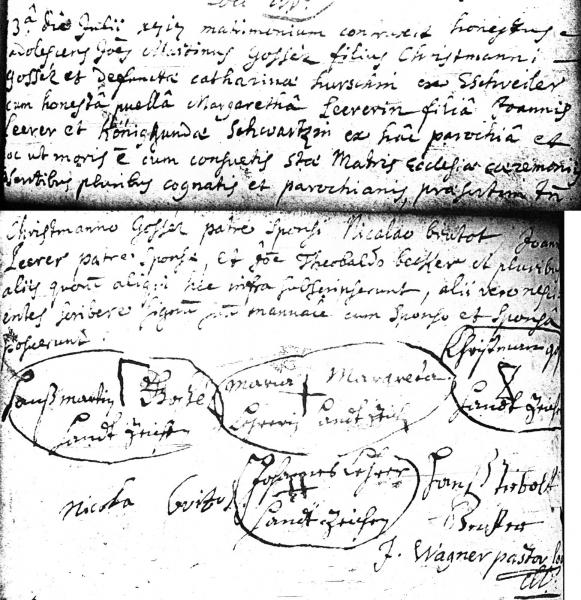 3ª die Julii matrimonium contraxit honestus
adolescens Joês Martinus Gosses filius Christmanni
Gosses et defunctæ catharinæ hurschin ex Eschweiler
cum honestâ puellâ Margarethâ Leererin filiâ Joannis
Leerer et Königundæ Schwartzin ex hac parochiâ et
hoc ut moris ē cum consuetis Stæ Matris Ecclesiæ cæremoniis
pluribus cognatis et parochianis, præsertim
Christmanno Gosses patre Sponsi Nicolao brutot Joann
Leerer patre Sponsæ, et Jôe Theobaldo becker et pluribus
aliis quorū aliqui hic infra subscripserunt, alii vero nesci-
entes scribere Signum manuale cum Sponso et Sponsa
posuerunt.
Hanß martin Handt Zeichen
maria Margreta Lehrerin handt Zeichen
Christman handt Zeichen
Nicola
Johannes Lehrer handt Zeichen
Hanß Tiebolt Becker
J. Wagner pastor